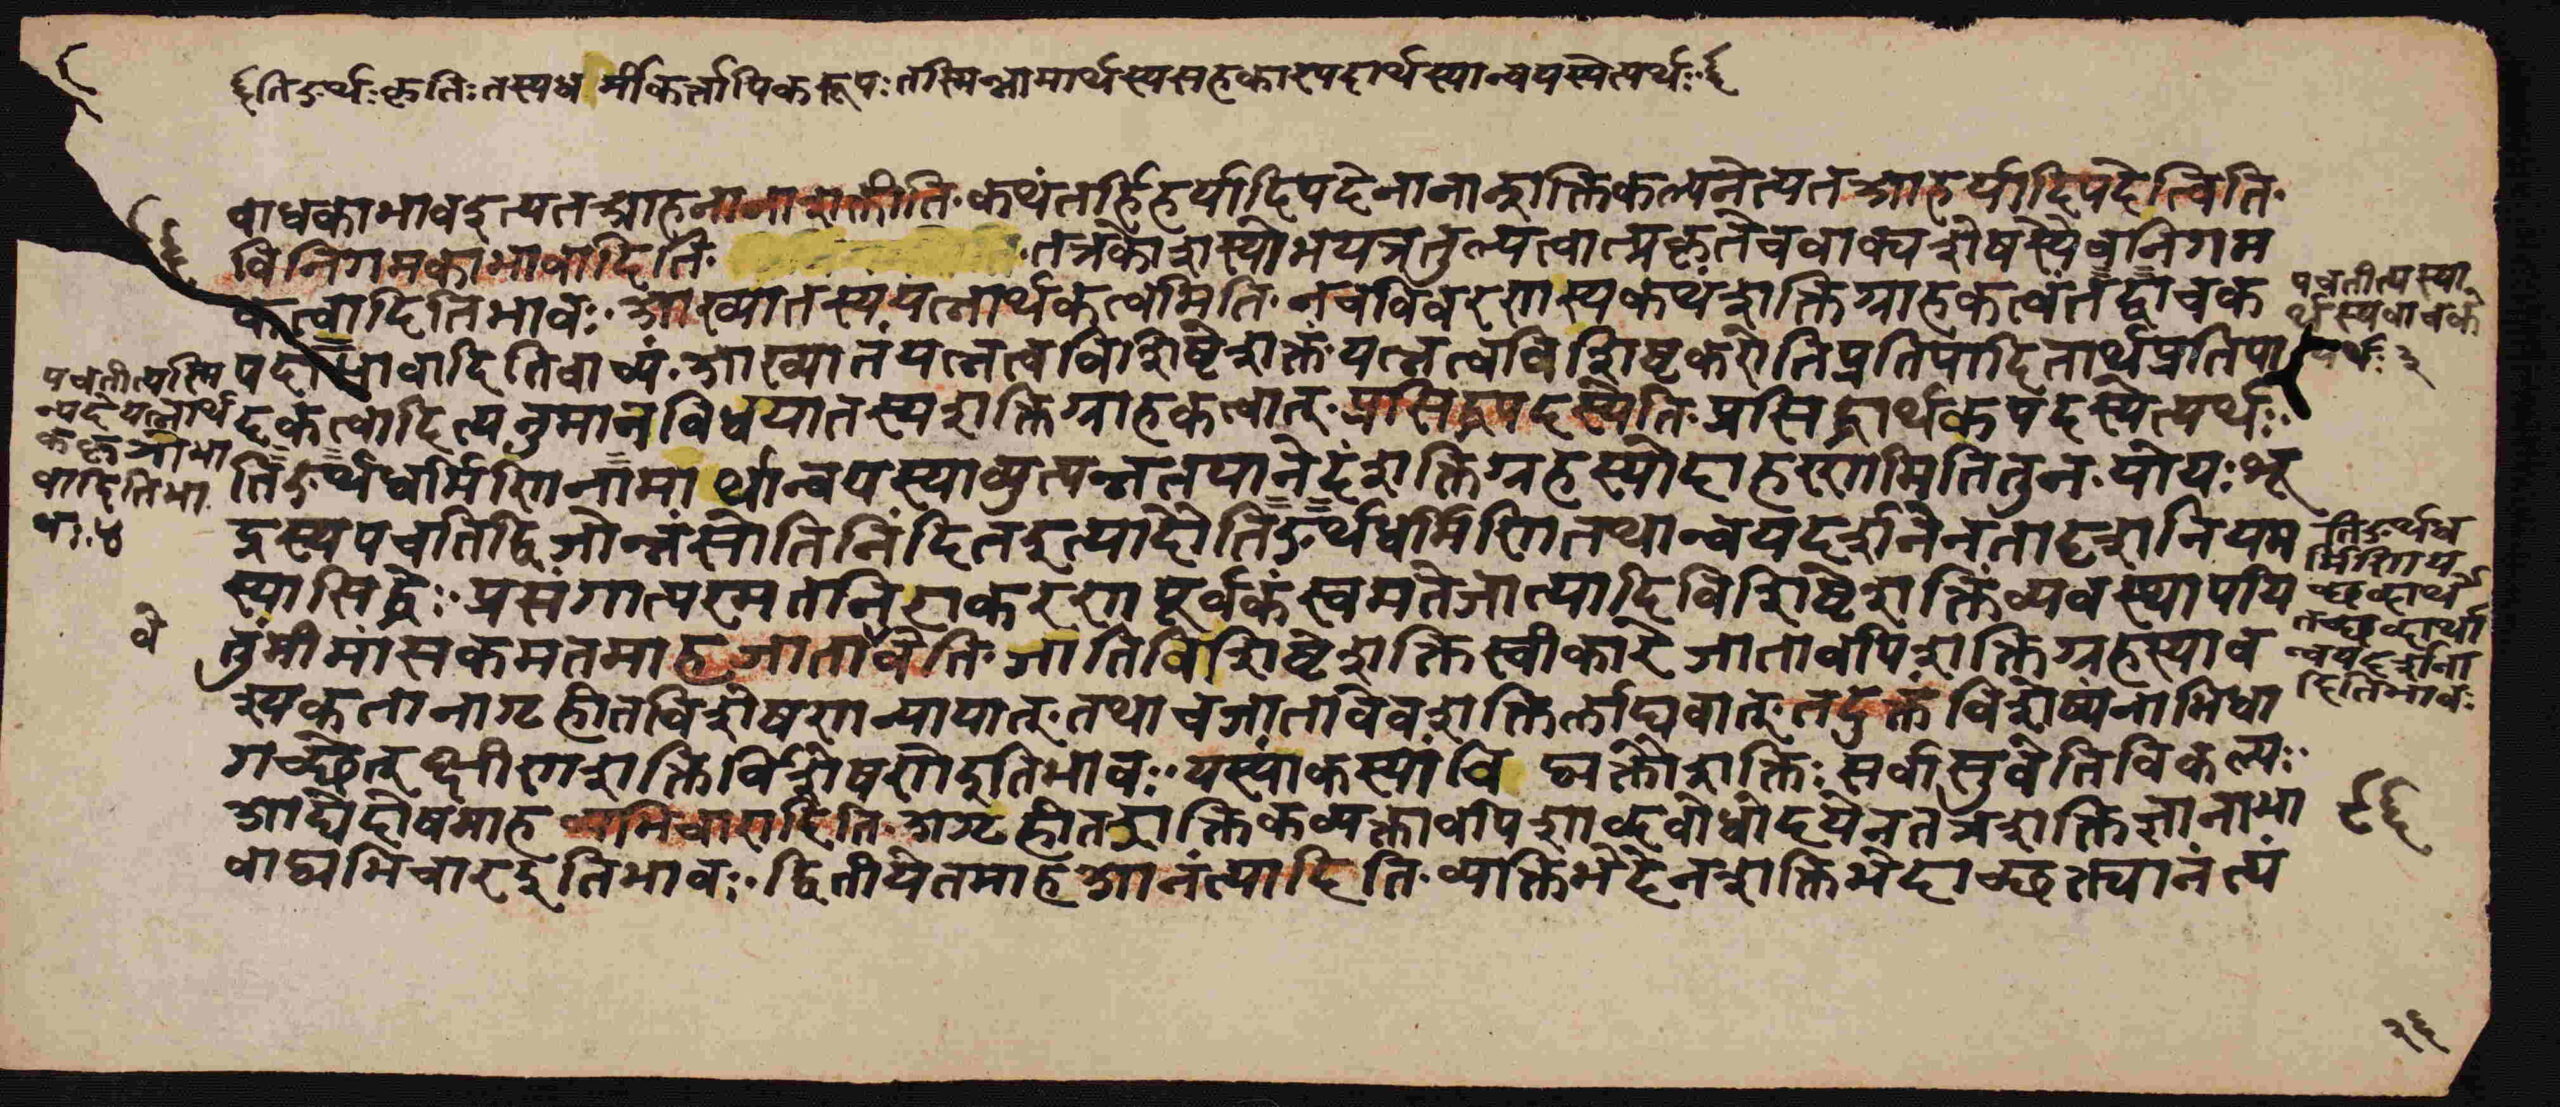 ६तिङर्थः कृतिः तस्यधर्मी कर्त्तापिकरूपः तस्मिन्नामार्थस्यसहकारपदार्थस्यान्वयस्येत्यर्थः ६
वाधकाभावइत्यतआहनानाशक्तीति कथंतर्हिहर्यादिपदेनानाशक्तिकल्पनेत्यतआहर्यादिपदेत्विति
विनिगमकाभावादिति तत्रकोशस्योभयत्रतुल्यत्वात्प्रकृतेचवाक्यशेषस्यैवनिगम
कत्वादितिभावः आख्यातस्ययत्नार्थकत्वमिति नचविवरणस्यकथंशक्तिग्राहकत्वंतद्वाचक
पदाभावादितिवाच्यं आख्यातंयत्नत्वविशिष्टेशक्तं यत्नत्वविशिष्टकरोतिप्रतिपादितार्थप्रतिपा
दकत्वादित्यनुमानविधयातस्यशक्तिग्राहकत्वात् प्रसिद्धपदस्येति प्रसिद्धार्थकपदस्येत्यर्थः
तिङर्थधर्मिणिनामार्थान्वयस्याव्युत्पन्नतयानेदंशक्तिग्रहस्योदाहरणमितितुन योयःशू
द्रस्यपचतिद्विजोन्नंसोतिनिंदितइत्यादौतिङर्थधर्मिणितथान्वयदर्शनेनतादृशनियम
स्यासिद्धेः प्रसंगात्परमतनिराकरणपूर्वकंस्वमतेजात्यादिविशिष्टेशक्तिंव्यवस्थापयि
तुंमीमांसकमतमाहजातावेति जातिविशिष्टेशक्तिस्वीकारेजातावपिशक्तिग्रहस्याव
श्यकतानागृहीतविशेषणन्यायात् तथाचजातावेवशक्तिर्लाघवात् तदुक्तंविशेष्यंनाभिधा
गच्छेत्क्षीणशक्तिर्विशेषणेइतिभावः यस्यांकस्यांविद्व्यक्तौशक्तिः सर्वासुवेतिविकल्पः
आद्येदोषमाह व्यभिचारादिति अगृहीतशक्तिकव्यक्तावपिशाब्दबोधोदयेनतत्रशक्तिज्ञानाभा
वाद्व्यभिचारइतिभावः द्वितीयेतमाहआनंत्यादिति व्यक्तिभेदेनशक्तिभेदाच्छक्त्यानंत्यं
पचतीत्यस्या
र्थस्यवाचके
त्यर्थः ३
पचतीत्यस्मि
न्पदेयत्नार्थ
वादितिभा
वः ४
तिङर्थध
र्मिणिय
च्छब्दार्थे
तच्छब्दार्था
न्वयदर्शना
दितिभावः
वे
२६